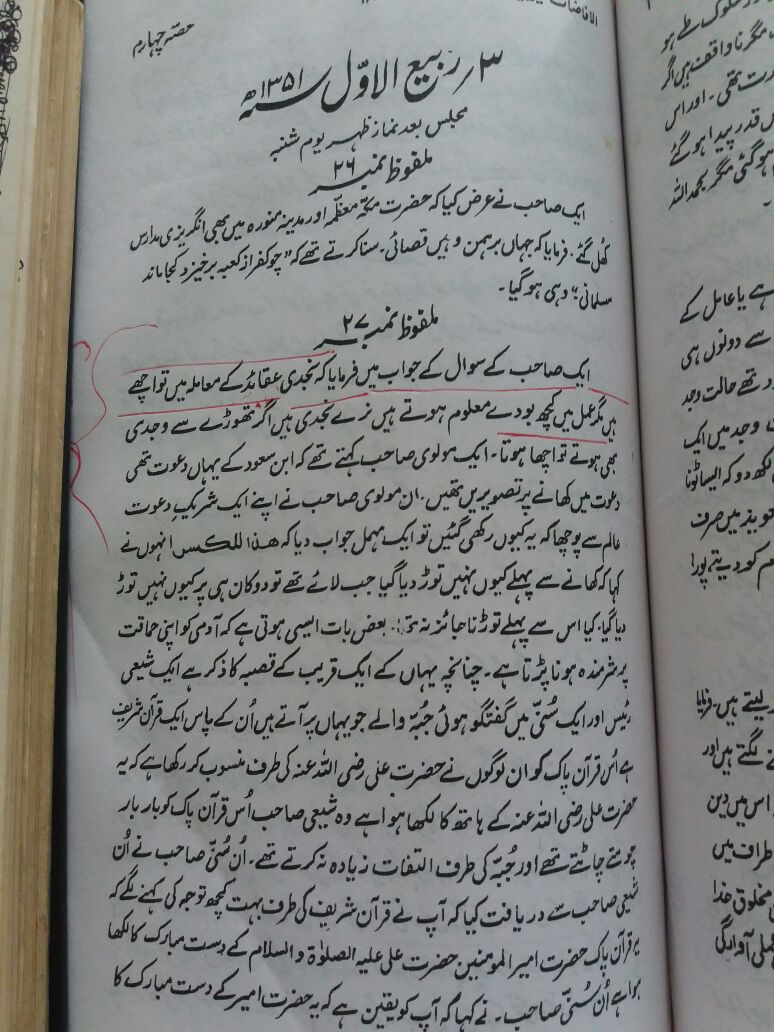 الافاضات
حصّہ چہارم
۳؍ ربیع الاوّل سنہ ۱۳۵۱ھ
مجلس بعد نماز ظہر یوم شنبہ
ملفوظ نمبر ۲۶
ایک صاحب نے عرض کیا کہ حضرت مکّہ معظّمہ اور مدینہ منورہ میں بھی انگریزی مدارس
کُھل گئے۔ فرمایا کہ جہاں برہمن وہیں قصائی۔ سنا کرتے تھے کہ ”چو کفر از کعبہ برخیزد کجا ماند
مسلمانی“ وہی ہوگیا۔
ملفوظ نمبر ۲۷
ایک صاحب کے سوال کے جواب میں فرمایا کہ نجدی عقائد کے معاملہ میں تو اچھے
ہیں مگر عمل میں کچھ بودے معلوم ہوتے ہیں نرے نجدی ہیں اگر تھوڑے سے وجدی
بھی ہوتے تو اچھا ہوتا۔ ایک مولوی صاحب کہتے تھے کہ ابن سعود کے یہاں دعوت تھی
دعوت میں کھانے پر تصویریں تھیں۔ ان مولوی صاحب نے اپنے ایک شریکِ دعوت
عالم سے پوچھا کہ یہ کیوں رکھی گئیں تو ایک مہمل جواب دیا کہ ھذا للکسر انہوں نے
کہا کہ کھانے سے پہلے کیوں نہیں توڑ دیا گیا جب لائے تھے تو دوکان ہی پر کیوں نہیں توڑ
دیا گیا۔ کیا اس سے پہلے توڑنا جائز نہ تھا۔ بعض بات ایسی ہوتی ہے کہ آدمی کو اپنی حماقت
پر شرمندہ ہونا پڑتا ہے۔ چنانچہ یہاں کے ایک قریب کے قصبہ کا ذکر ہے ایک شیعی
رئیس اور ایک سُنّی میں گفتگو ہوئی جُبّہ والے جو یہاں پر آتے ہیں اُن کے پاس ایک قرآن شریف
ہے اُس قرآن پاک کو ان لوگوں نے حضرت علی رضی اللہ عنہ کی طرف منسوب کر رکھا ہے کہ یہ
حضرت علی رضی اللہ عنہ کے ہاتھ کا لکھا ہوا ہے وہ شیعی صاحب اُس قرآن پاک کو بار بار
چومتے چاٹتے تھے اور جُبّہ کی طرف التفات زیادہ نہ کرتے تھے۔ اُن سُنّی صاحب نے اُن
شیعی صاحب سے دریافت کیا کہ آپ نے قرآن شریف کی طرف بہت کچھ توجہ کی کہنے لگے کہ
یہ قرآن پاک حضرت امیر المومنین حضرت علی علیہ الصلوٰۃ والسلام کے دست مبارک کا لکھا
ہوا ہے اُن سُنّی صاحب۔ نے کہا کہ آپ کو یقین ہے کہ یہ حضرت امیر کے دست مبارک کا
سلوک طے ہو
مگر ناواقف ہیں اگر
ورت تھی۔ اور اس
قدر پیدا ہو گئے
ہو گئی مگر بحمد اللہ
ہے یا عامل کے
سے دونوں ہی
تھے حالت وجد
وجد میں ایک
لکھ دو کہ ایسا ٹوٹا
تعویذ میں صرف
کو دیتے پورا
لیتے ہیں۔ فرمایا
لگتے ہیں اور
اس میں دین
طراف میں
مخلوق خدا
آوارگی